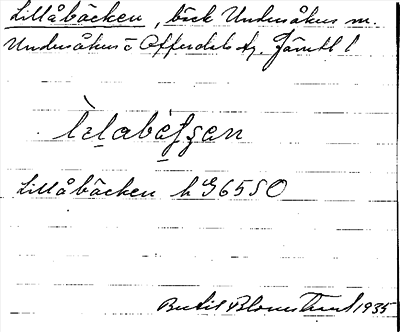 Lillåbäcken, bäck Undersåkers m.
Undersåkers o Offerdals tg. Jämtl l
Lillåbäcken k G65SO
Bertil Blomstrand 1935